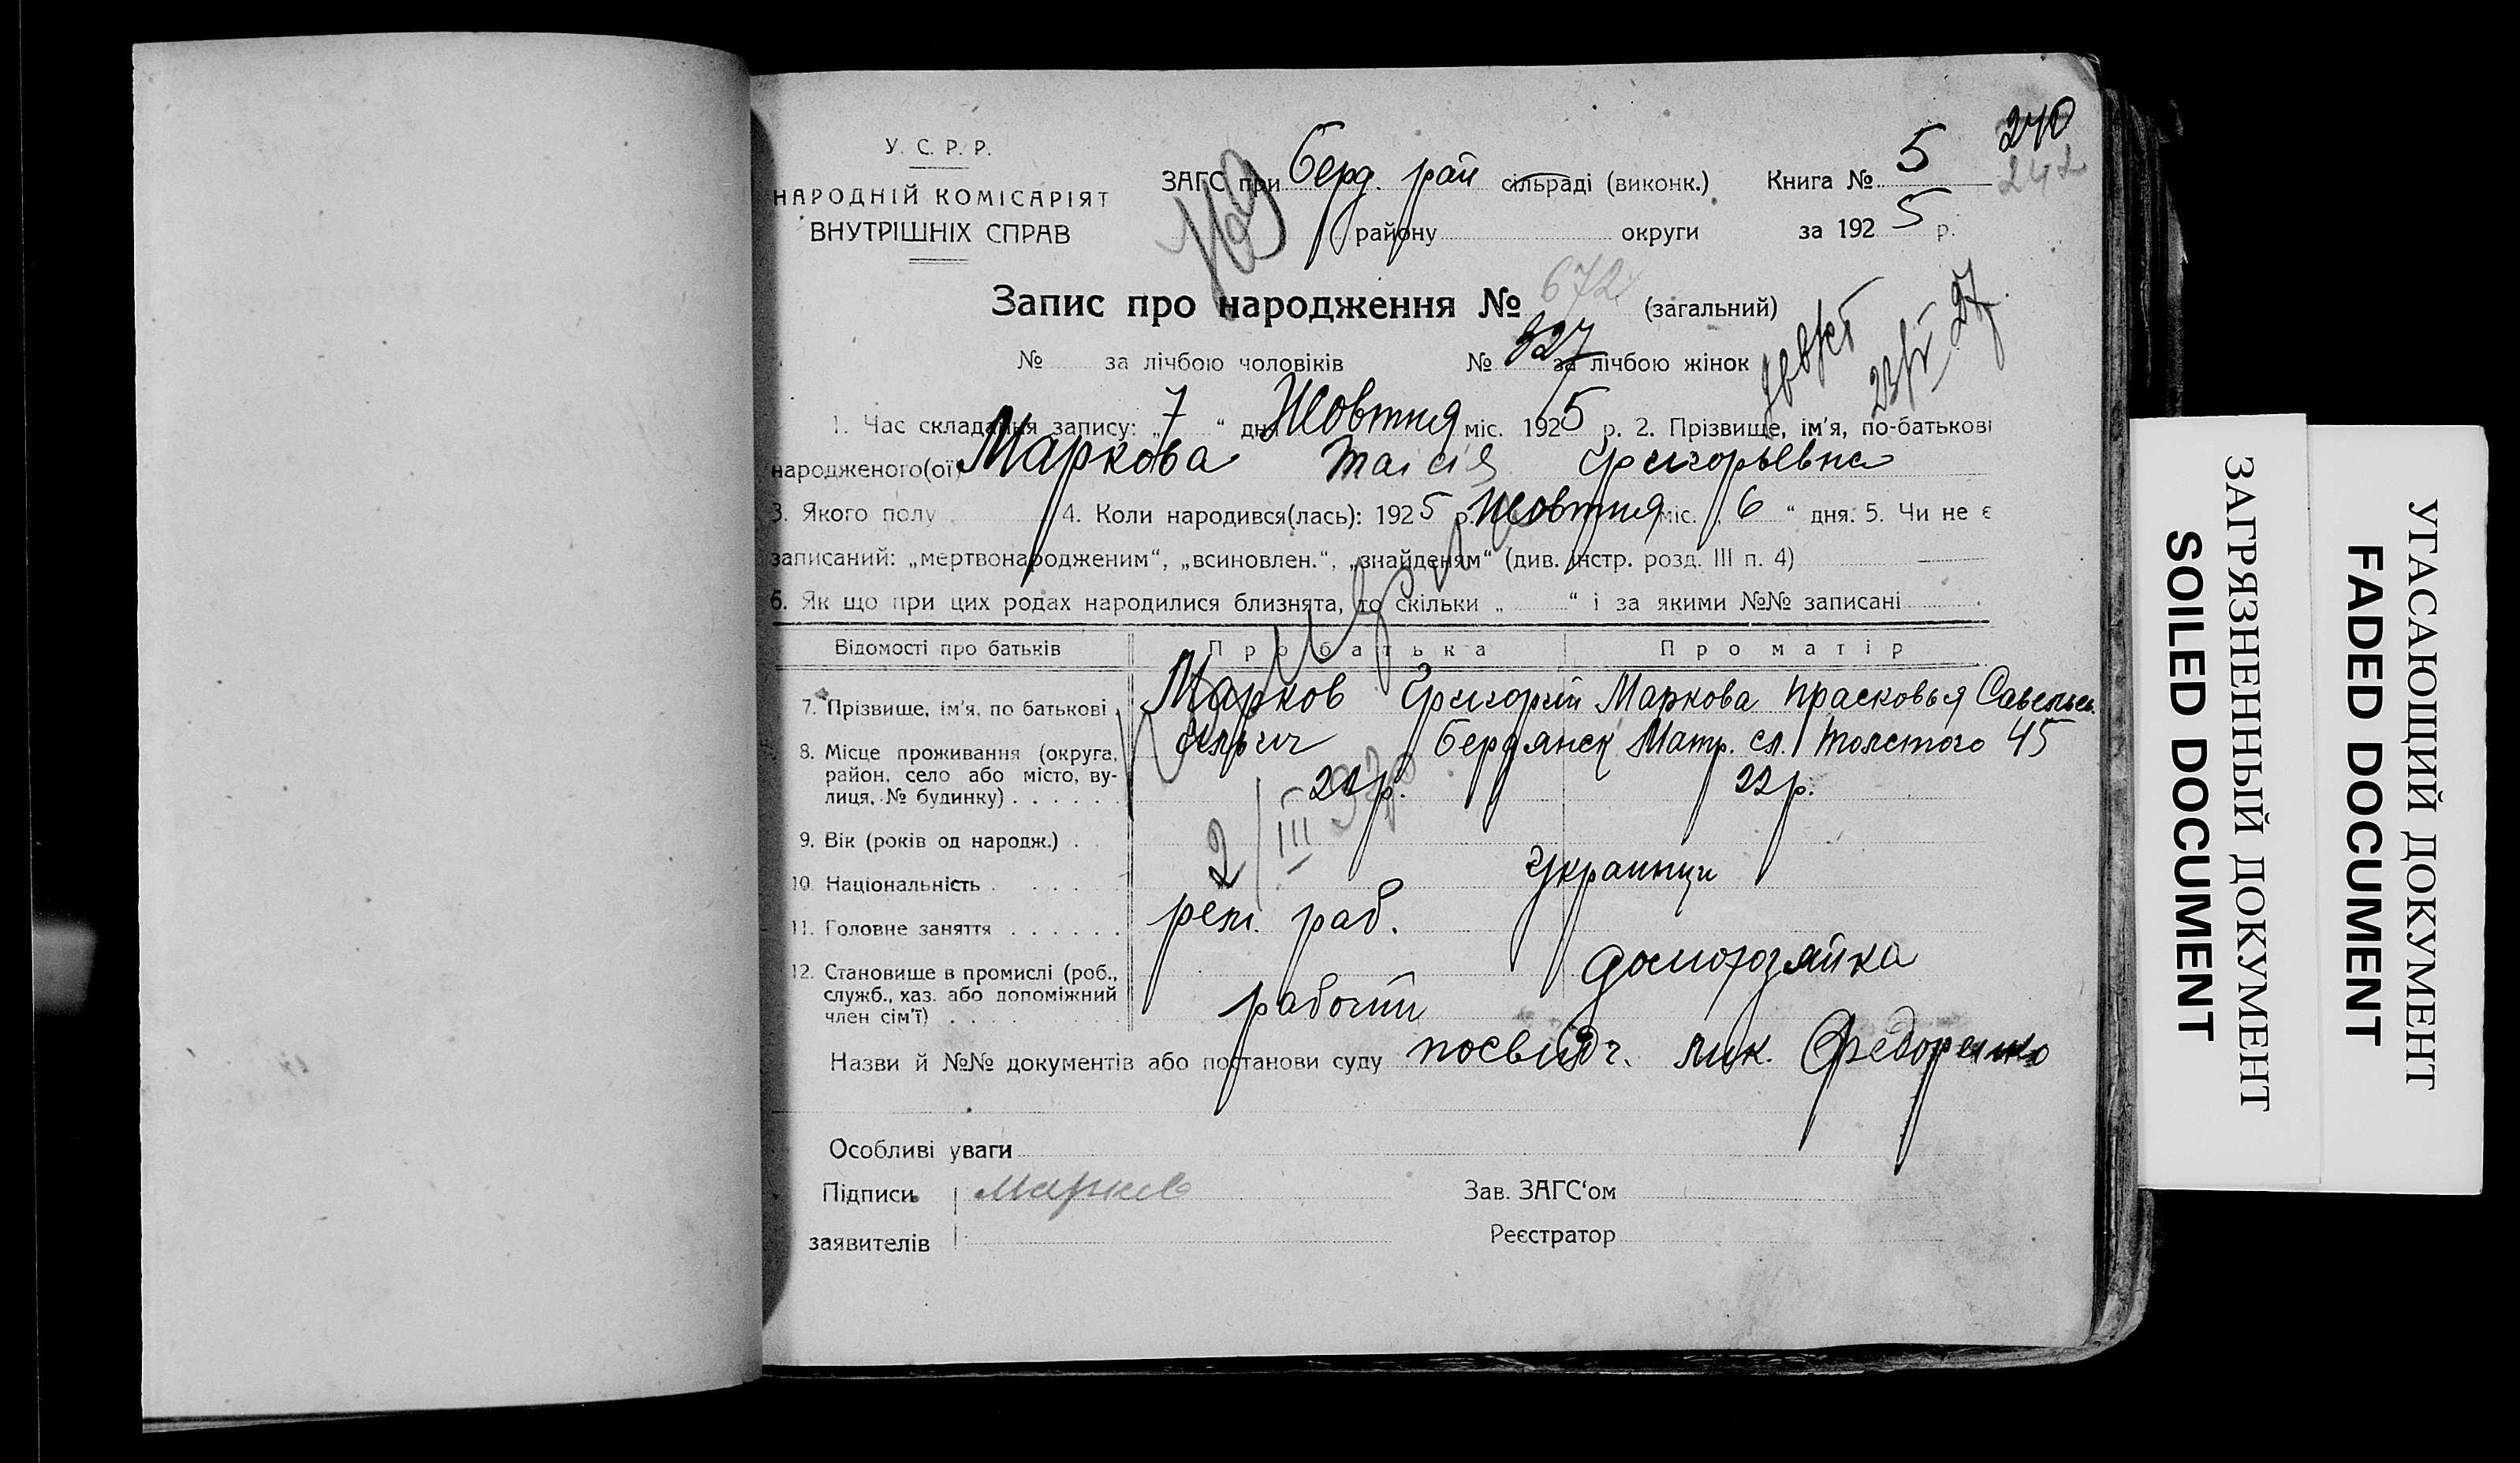 240
242
У. С. Р. Р.
НАРОДНІЙ КОМІСАРІЯТ
ВНУТРІШНІХ СПРАВ
ЗАГС при Берд. рай сільраді (виконк.) Книга № 5
району округи за 1925 р.
Запис про народження № 672 (загальний)
№ за лічбою чоловіків № 327 за лічбою жінок
1. Час складання запису: „7“ дня Жовтня міс. 1925 р. 2. Прізвище, ім'я, по-батькові
народженого(ої) Маркова Таісія Григорьевна
3. Якого полу 4. Коли народився(лась): 1925 р. Жовтня міс. „6“ дня. 5. Чи не є
записаний: „мертвонародженим“, „всиновлен.“, „знайденям“ (див. інстр. розд. III п. 4)
6. Як що при цих родах народилися близнята, то скільки „ “ і за якими №№ записані
Відомості про батьків Про батька Про матір
7. Прізвище, ім'я, по батькові Марков Григорий Маркова Прасковья Савельев.
8. Місце проживання (округа, район, село або місто, вулиця, № будинку) Бердянск Матр. сл. Толстого 45
22 р.
9. Вік (років од народж.)
10. Національність Украинци
11. Головне заняття раб.
домохозяйка
12. Становище в промислі (роб., служб., хаз. або допоміжний член сім'ї) рабочий
Назви й №№ документів або постанови суду посвидч. лик. Федоренко
Особливі уваги
Підписи Марков Зав. ЗАГС‘ом
заявителів Реєстратор
ЗАГРЯЗНЕННЫЙ ДОКУМЕНТ
SOILED DOCUMENT
УГАСАЮЩИЙ ДОКУМЕНТ
FADED DOCUMENT